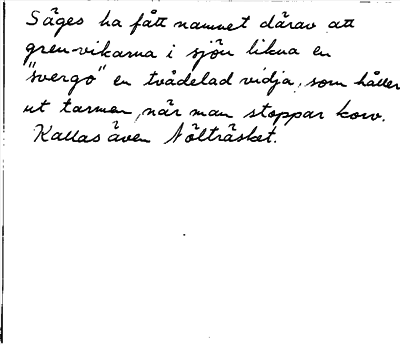 Säges ha fått namnet därav att
gren-vikarna i sjön likna en
"svergo" en tvådelad vidja, som håller
ut tarmen, när man stoppar korv.
Kallas även Nölträsket.